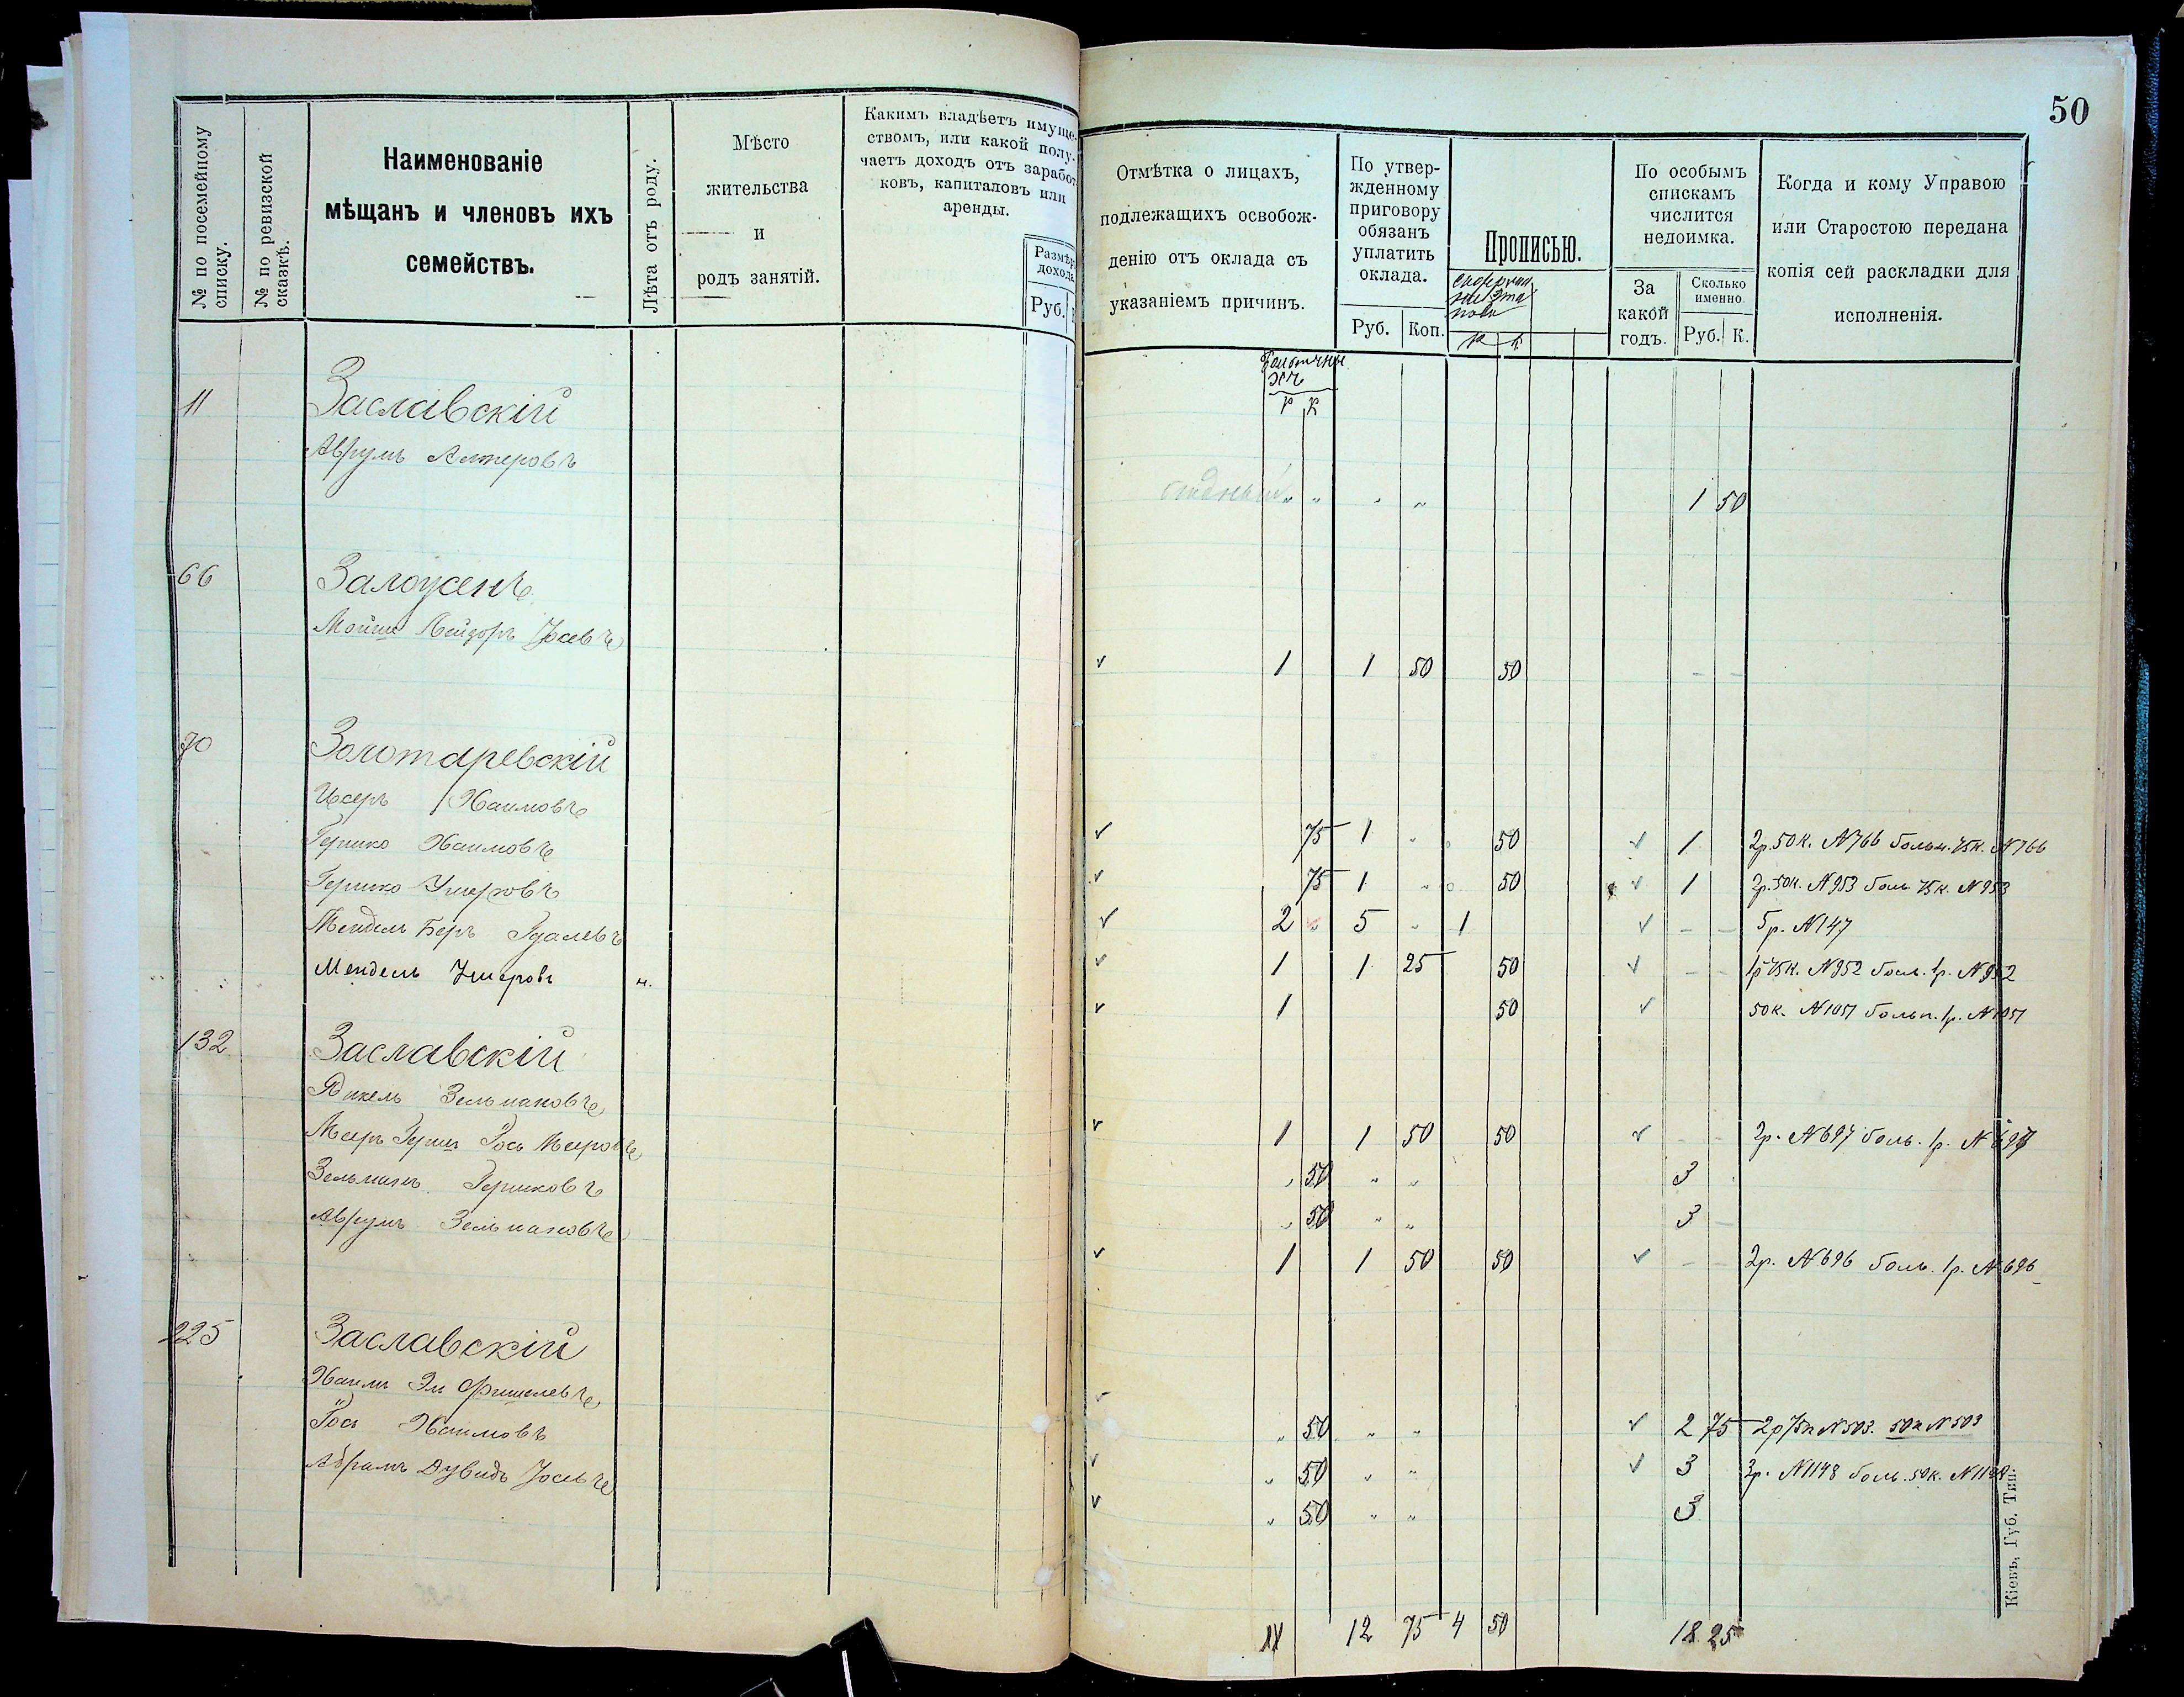 50
№ по посемейному списку.
№ по ревизской сказкѣ.
Наименованіе
мѣщанъ и членовъ ихъ
семействъ.
Лѣта отъ роду.
Мѣсто
жительства
и
родъ занятій.
Какимъ владѣетъ имуще-
ствомъ, или какой полу-
чаетъ доходъ отъ заработ-
ковъ, капиталовъ или
аренды.
Размѣръ
дохода
Руб.
Отмѣтка о лицахъ,
подлежащихъ освобож-
денію отъ оклада съ
указаніемъ причинъ.
По утвер-
жденному
приговору
обязанъ
уплатить
оклада.
Руб. Коп.
Прописью.
По особымъ
спискамъ
числится
недоимка.
За
какой
годъ.
Сколько
именно.
Руб. К.
Когда и кому Управою
или Старостою передана
копія сей раскладки для
исполненія.
р к
11 Заславскій
Аврумъ Алтеровъ
бѣдный " " " " 1 50
66 Залоуженъ
1 1 50 50 - -
70 Золотаревскій
Исеръ Хаимовъ
75 1 " 50 1 2р.50к. №766 больн. 75к. №766
Гершко Хаимовъ
75 1 " 50 1 2р.50к. №953 боль 75к. №953
Гершко Ушеровъ
2 " 5 " 1 - - 5р. №147
Мендель Беръ Гдалевъ
1 1 25 50 - - 1р 75к. №952 боль. 1р. №952
Мендель Ушеровъ н.
1 50 50к. №1051 больн. 1р. №1051
132 Заславскій
Янкель Зельмановъ
1 1 50 50 - - 2р. №697 боль. 1р. №697
Мееръ Герш Іось Мееровъ
" 50 " " 3
Зельманъ Гершковъ
" 50 " " 3 -
Аврумъ Зельмановъ
1 1 50 50 - - 2р. №696 боль. 1р. №696
225 Заславскій
Хаимъ Эли Фишелевъ
" 50 " " 2 75 2р75к №503. 50к №503
Іось Хаимовъ
" 50 " " 3 3р. №1148 боль. 50к. №1148
Абрамъ Дувидъ Іосевъ
" 50 " " 3
11 12 75 4 50 18 25
Кіевъ, Губ. Тип.